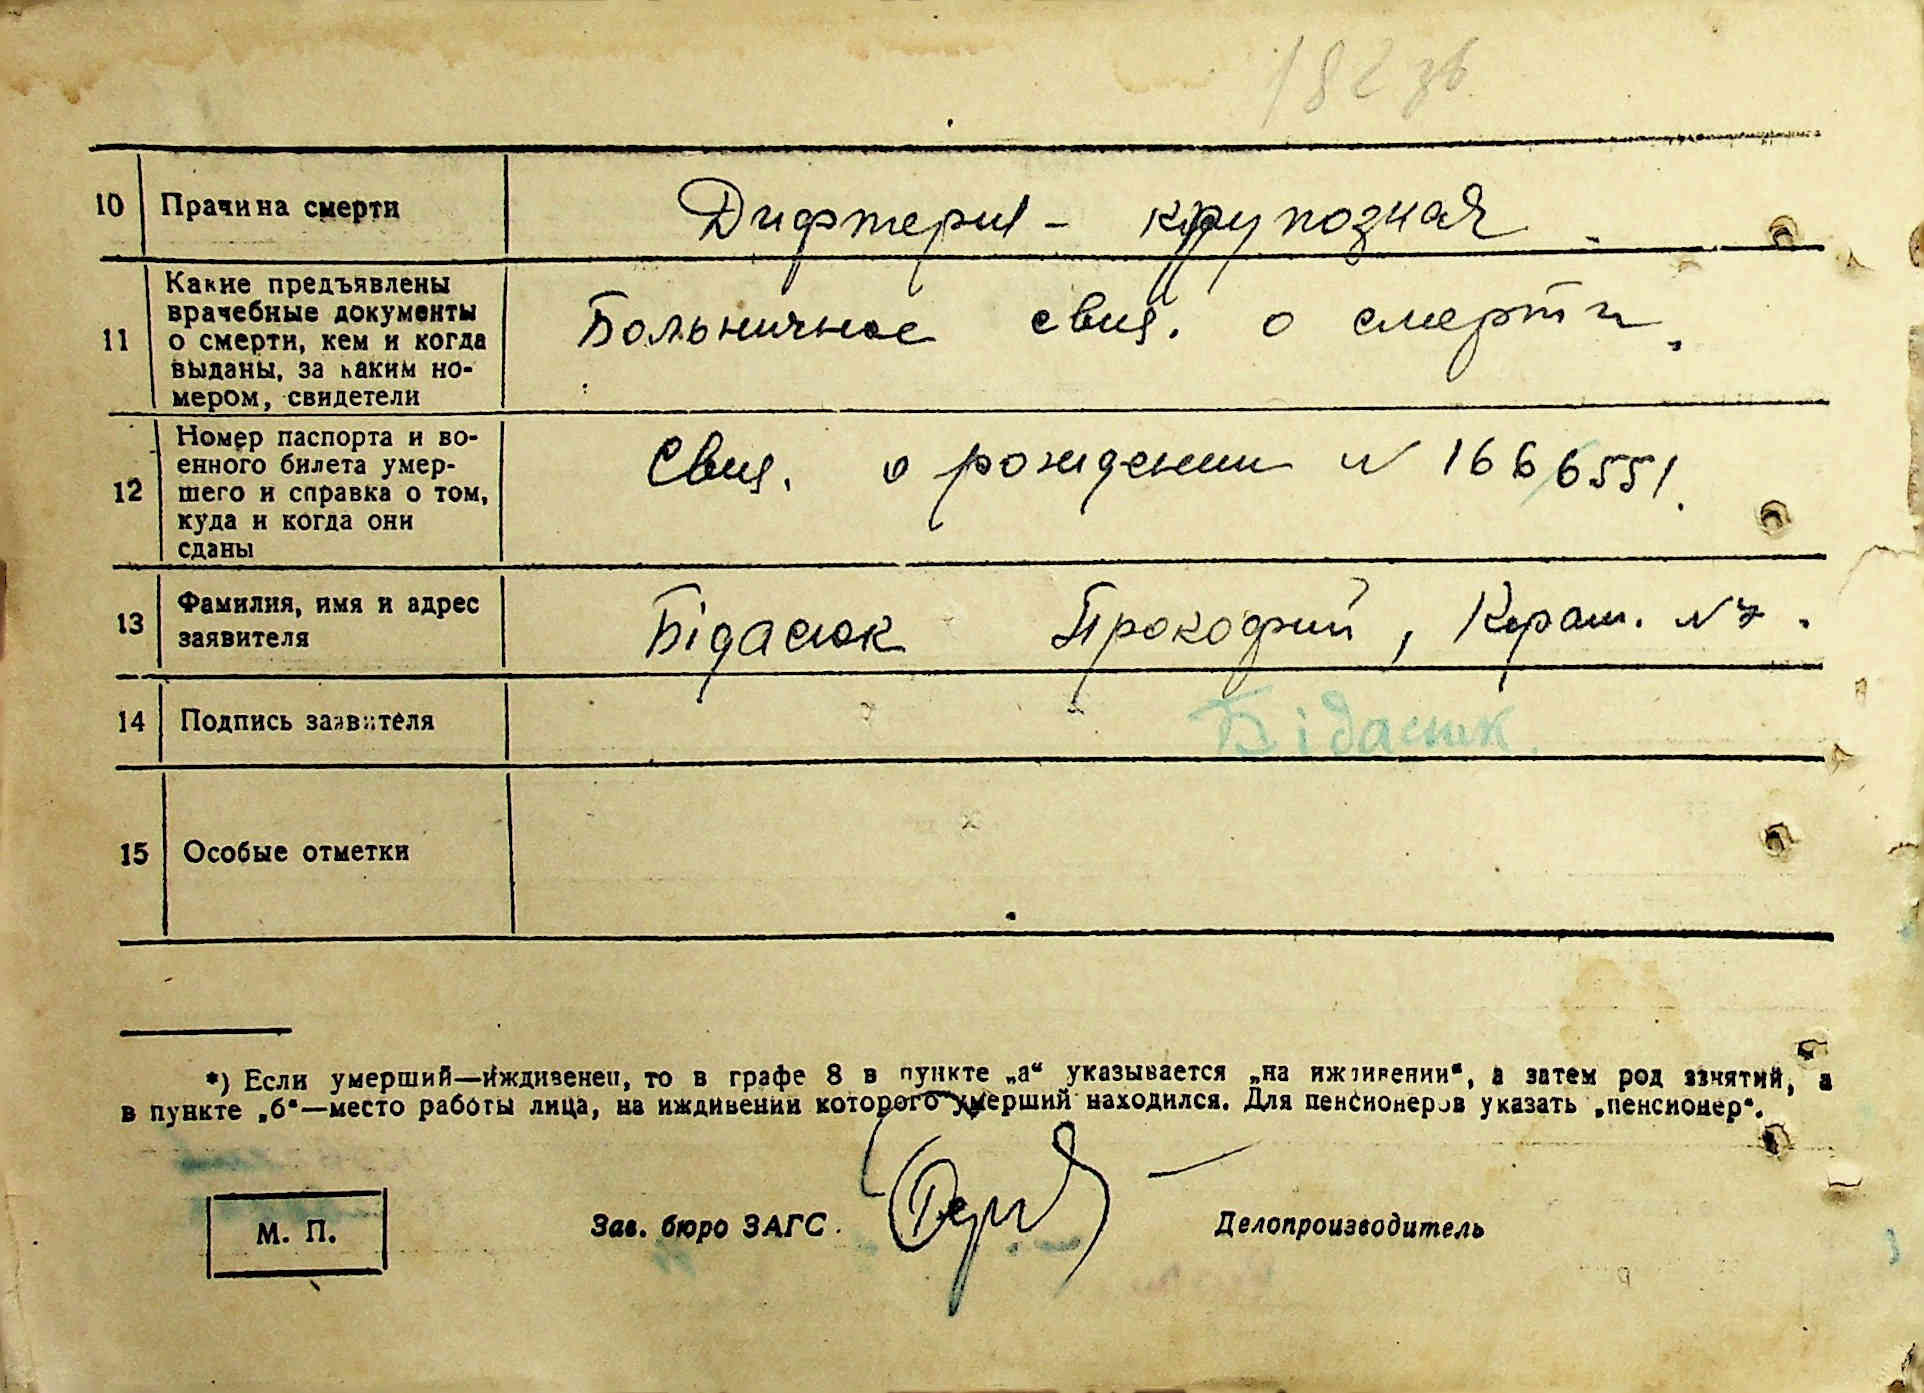 182 зв
10 Причина смерти Дифтерия - крупозная
11 Какие предъявлены врачебные документы о смерти, кем и когда выданы, за каким номером, свидетели
Больничное свид. о смерти.
12 Номер паспорта и военного билета умершего и справка о том, куда и когда они сданы
Свид. о рождении N 1666551.
13 Фамилия, имя и адрес заявителя
Бідасюк Прокофий, Краш. N 7.
14 Подпись заявителя Бідасюк
15 Особые отметки
*) Если умерший—иждивенец, то в графе 8 в пункте „а“ указывается „на иждивении“, а затем род занятий, а
в пункте „б“—место работы лица, на иждивении которого умерший находился. Для пенсионеров указать „пенсионер“.
М. П. Зав. бюро ЗАГС Делопроизводитель